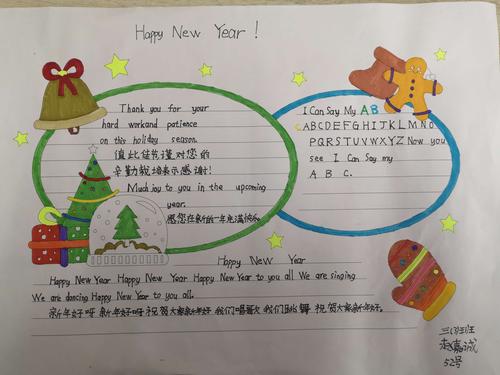 Happy New Year !
Thank you for your
hard workand patience
on this holiday season.
值此佳节谨对您的
辛勤栽培表示感谢!
Much joy to you in the upcoming
year.
愿您在新的一年充满快乐
I Can Say My AB
CABCDEFGHIJKLMNO
PQRSTUVWXYZ Now you
see I Can Say my
A B C.
Happy New Year
Happy New Year Happy New Year Happy New Year to you all We are singing
We are dancing Happy New Year to you all.
新年好呀 新年好呀 祝贺大家新年好 我们唱歌 我们跳舞 祝贺大家新年好。
三(3)班
赵嘉诚
52号